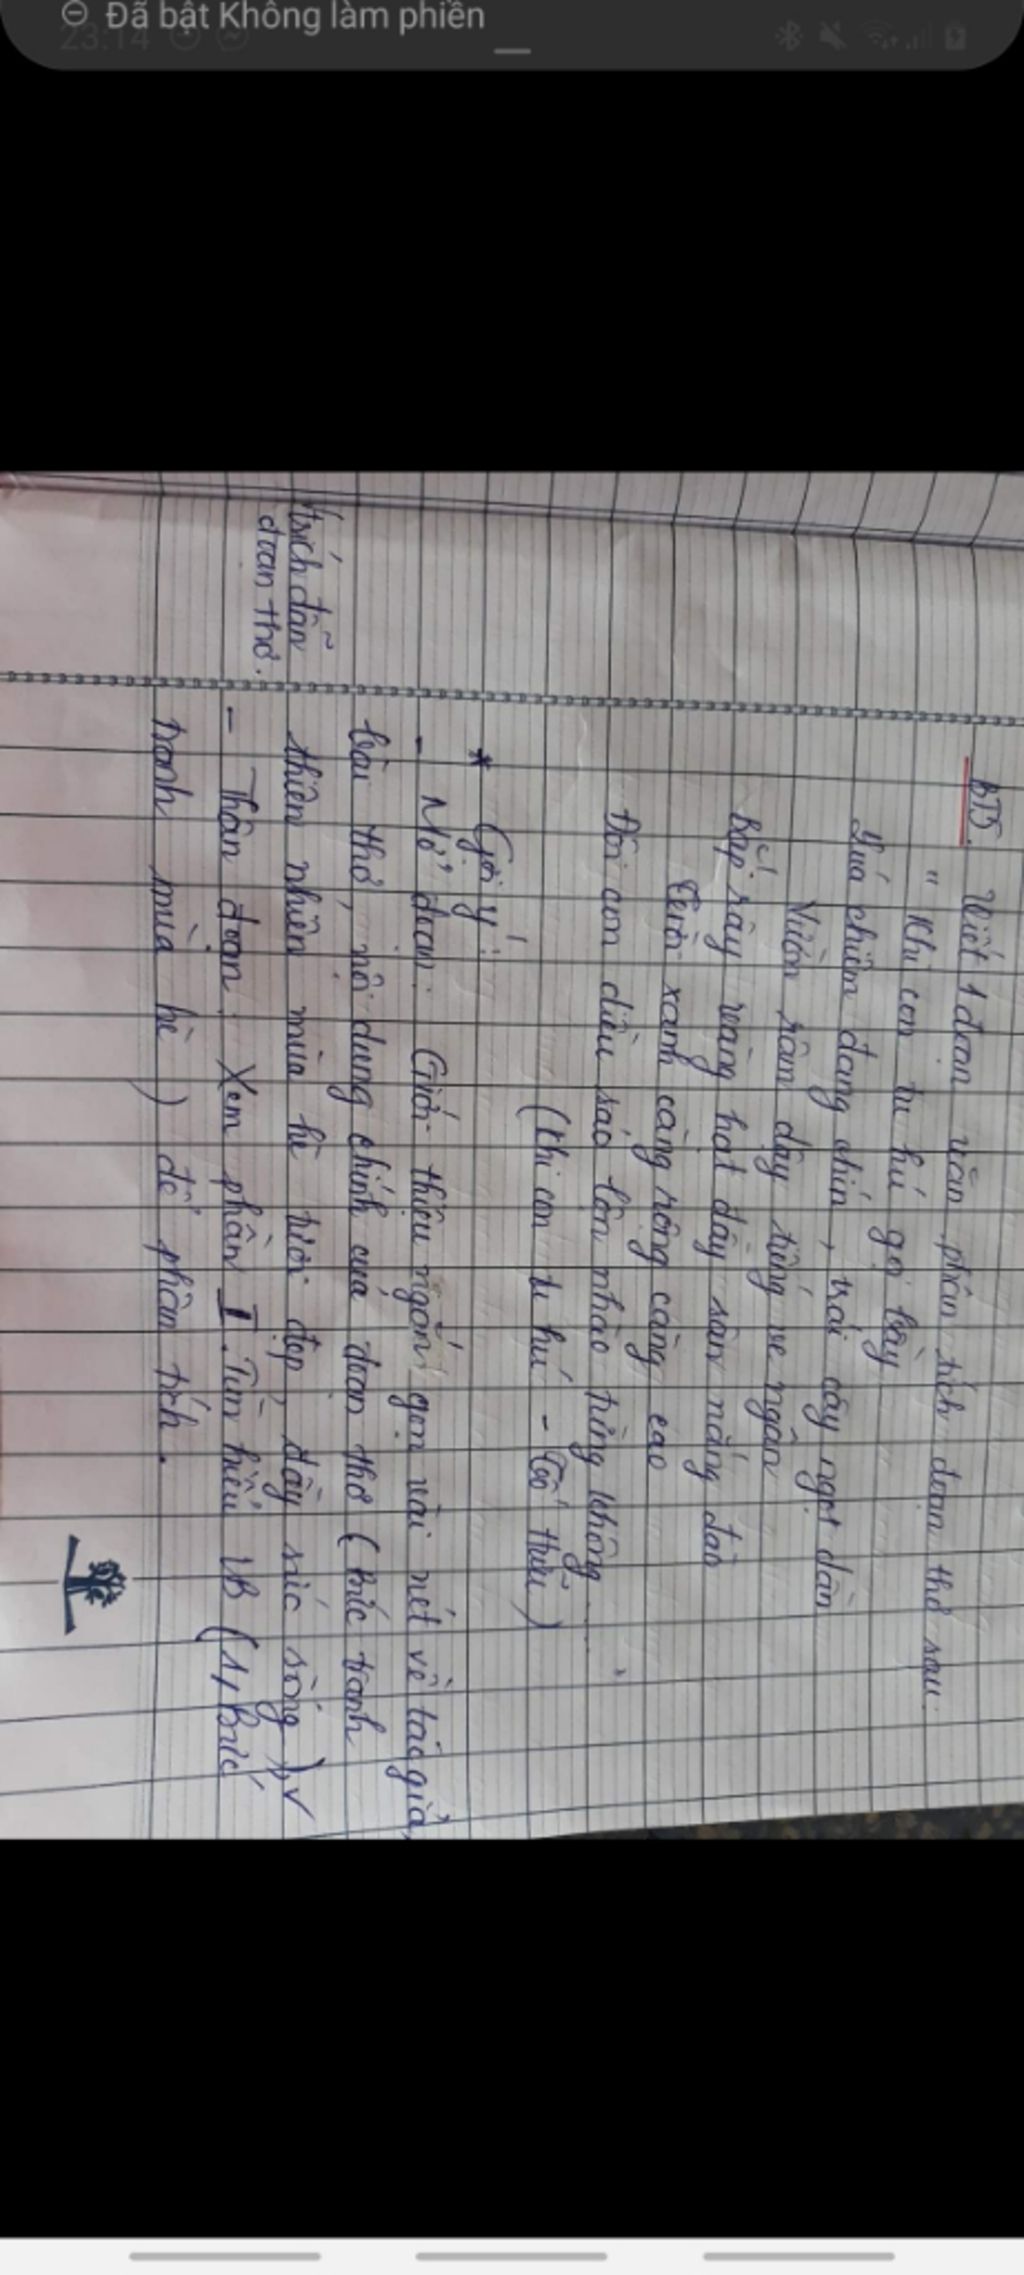 Đã bật Không làm phiền
23:14
BT5. Viết 1 đoạn văn phân tích đoạn thơ sau:
"Khi con tu hú gọi bầy
Lúa chiêm đang chín, trái cây ngọt dần
Vườn râm dậy tiếng ve ngân
Bắp rây vàng hạt đầy sân nắng đào
Trời xanh càng rộng càng cao
Đôi con diều sáo lộn nhào từng không..."
(Khi con tu hú - Tố Hữu)
* Gợi ý:
- Mở đoạn: Giới thiệu ngắn gọn vài nét về tác giả,
bài thơ, nội dung chính của đoạn thơ (Bức tranh
thiên nhiên mùa hè tươi đẹp, đầy sức sống), v
trích dẫn
đoạn thơ.
- Thân đoạn: Xem phần I. Tìm hiểu VB (1, Bức
tranh mùa hè) để phân tích.